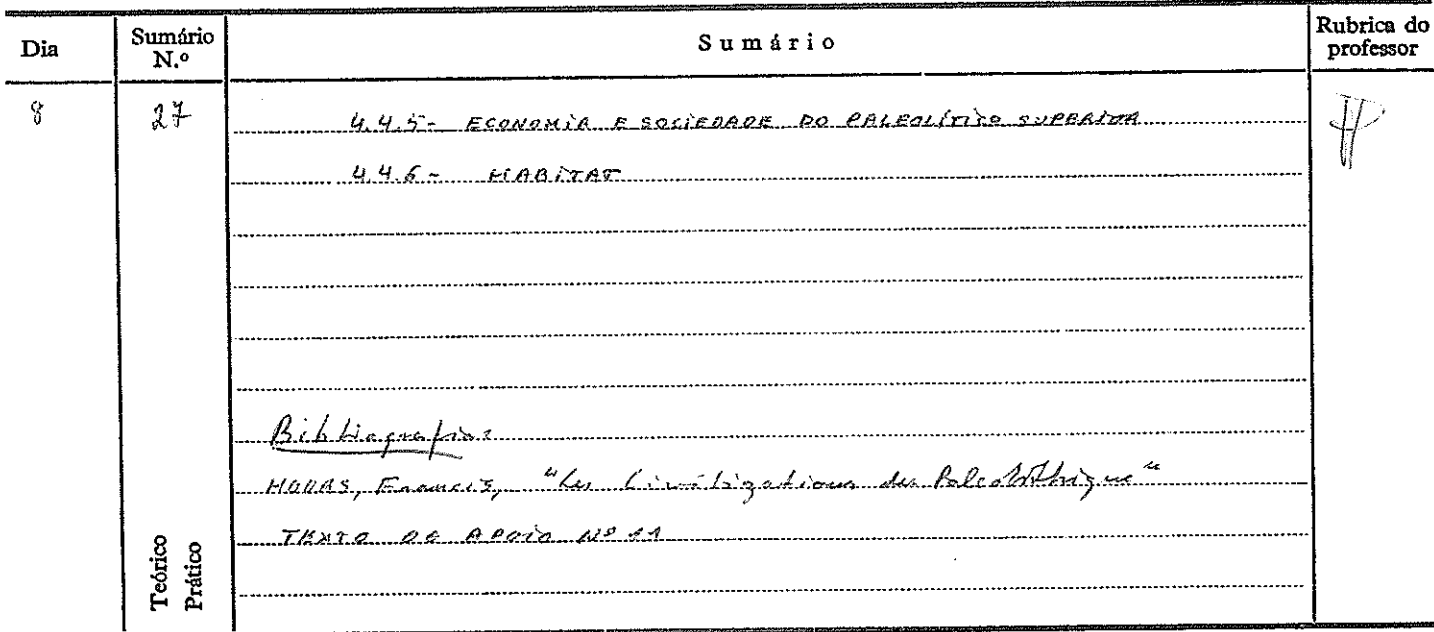 Dia
Sumário N.º
Sumário
Rubrica do professor
8
27
4.4.5- ECONOMIA E SOCIEDADE DO PALEOLÍTICO SUPERIOR
4.4.6- HABITAT
Bibliografia:
HOURS, Francis, "Les Civilizations du Paleolithique"
TEXTO DE APOIO Nº 11
Teórico
Prático